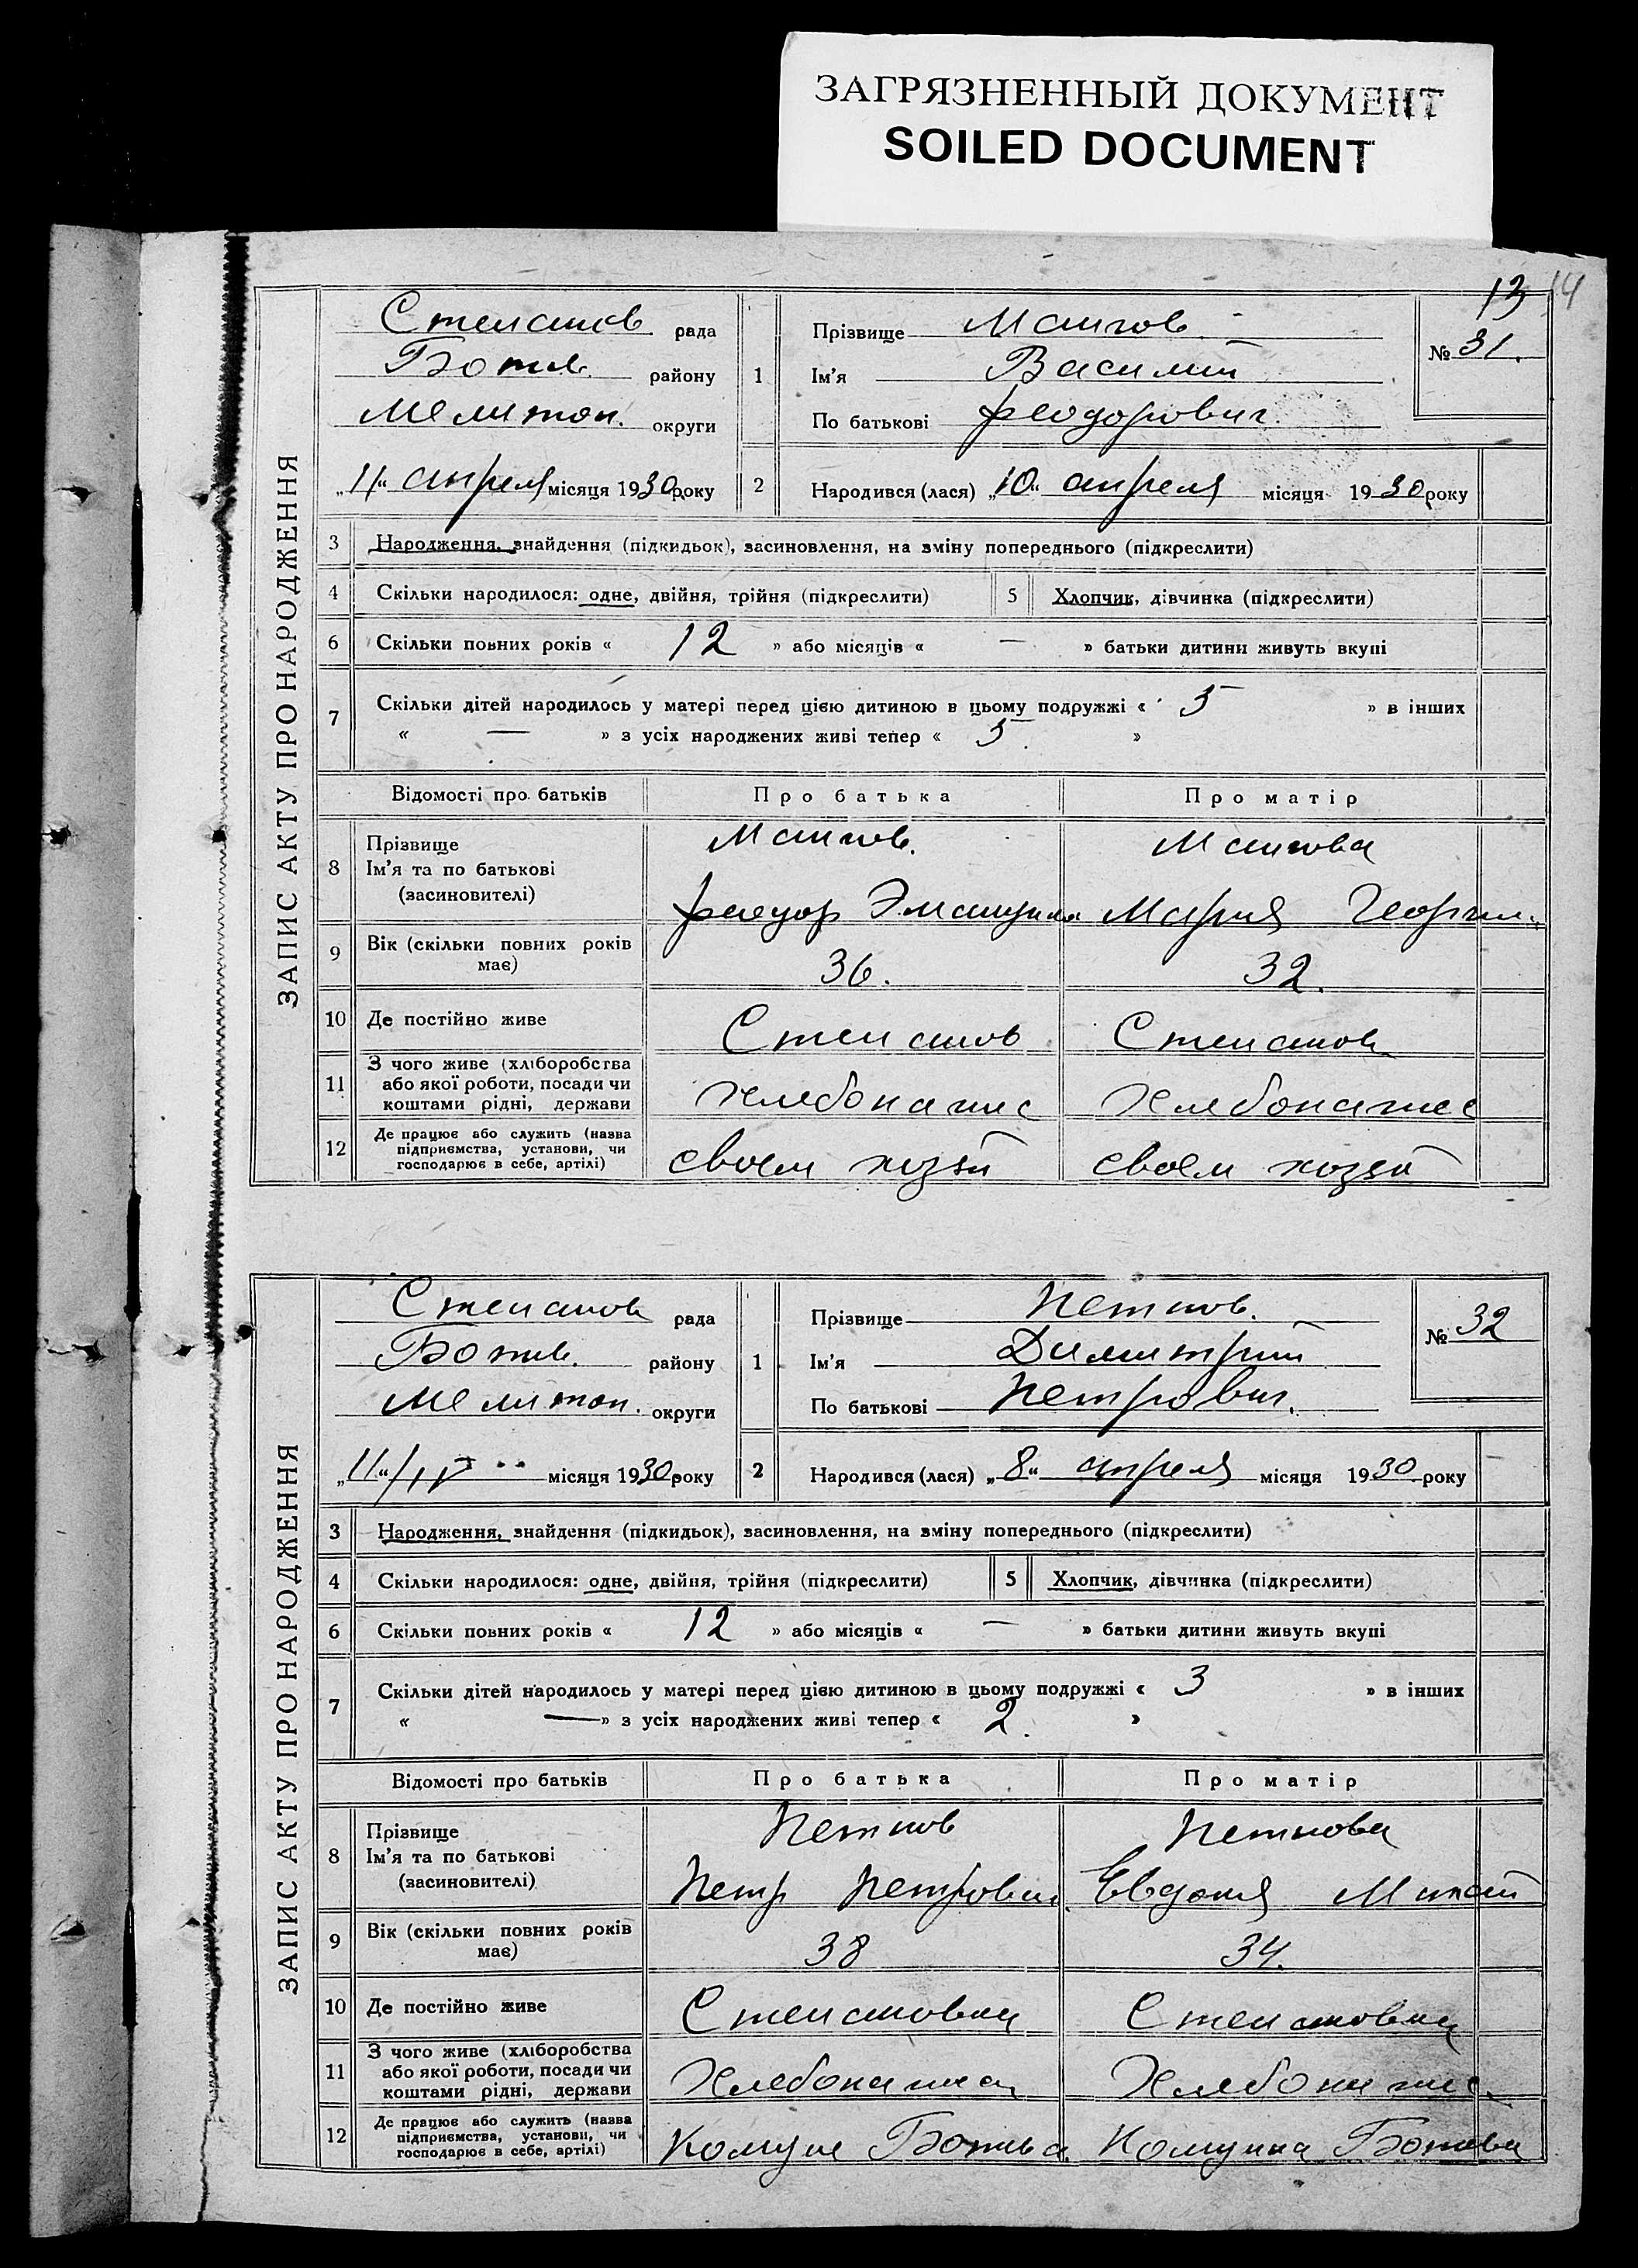 ЗАГРЯЗНЕННЫЙ ДОКУМЕНТ
SOILED DOCUMENT
13 14
ЗАПИС АКТУ ПРО НАРОДЖЕННЯ
Степанов рада
Ботив. району
Мелитоп. округи
„11“ апреля місяця 1930 року
1 Прізвище
Ім'я Василий
По батькові Феодорович
№ 31.
2 Народився (лася) „10“ апреля місяця 1930 року
3 Народження, знайдення (підкидьок), засиновлення, на зміну попереднього (підкреслити)
4 Скільки народилося: одне, двійня, трійня (підкреслити) 5 Хлопчик, дівчинка (підкреслити)
6 Скільки повних років « 12 » або місяців « — » батьки дитини живуть вкупі
7 Скільки дітей народилось у матері перед цією дитиною в цьому подружжі « 5 » в інших
« — » з усіх народжених живі тепер « 5. »
Відомості про батьків Про батька Про матір
8 Прізвище
Ім'я та по батькові
(засиновителі)
Феодор Мария Георгии.
9 Вік (скільки повних років
має)
36. 32.
10 Де постійно живе Степанов Степанов
11 З чого живе (хліборобства
або якої роботи, посади чи
коштами рідні, держави
Хлебопашес Хлебопашес
12 Де працює або служить (назва
підприємства, установи, чи
господарює в себе, артілі)
своем хозяй своем хозяй
ЗАПИС АКТУ ПРО НАРОДЖЕННЯ
Степанов рада
Ботив. району
Мелитоп. округи
„11“ /IV місяця 1930 року
1 Прізвище Петков.
Ім'я Димитрий
По батькові Петрович.
№ 32
2 Народився (лася) „8“ апреля місяця 1930 року
3 Народження, знайдення (підкидьок), засиновлення, на зміну попереднього (підкреслити)
4 Скільки народилося: одне, двійня, трійня (підкреслити) 5 Хлопчик, дівчинка (підкреслити)
6 Скільки повних років « 12 » або місяців « — » батьки дитини живуть вкупі
7 Скільки дітей народилось у матері перед цією дитиною в цьому подружжі « 3 » в інших
« — » з усіх народжених живі тепер « 2. »
Відомості про батьків Про батька Про матір
8 Прізвище
Ім'я та по батькові
(засиновителі)
Петков Петкова
Петр Петрович Евдокия
9 Вік (скільки повних років
має)
38 34.
10 Де постійно живе Степановки Степановки
11 З чого живе (хліборобства
або якої роботи, посади чи
коштами рідні, держави
Хлебопашец Хлебопашес
12 Де працює або служить (назва
підприємства, установи, чи
господарює в себе, артілі)
Комуне Ботьева Комуна Ботева